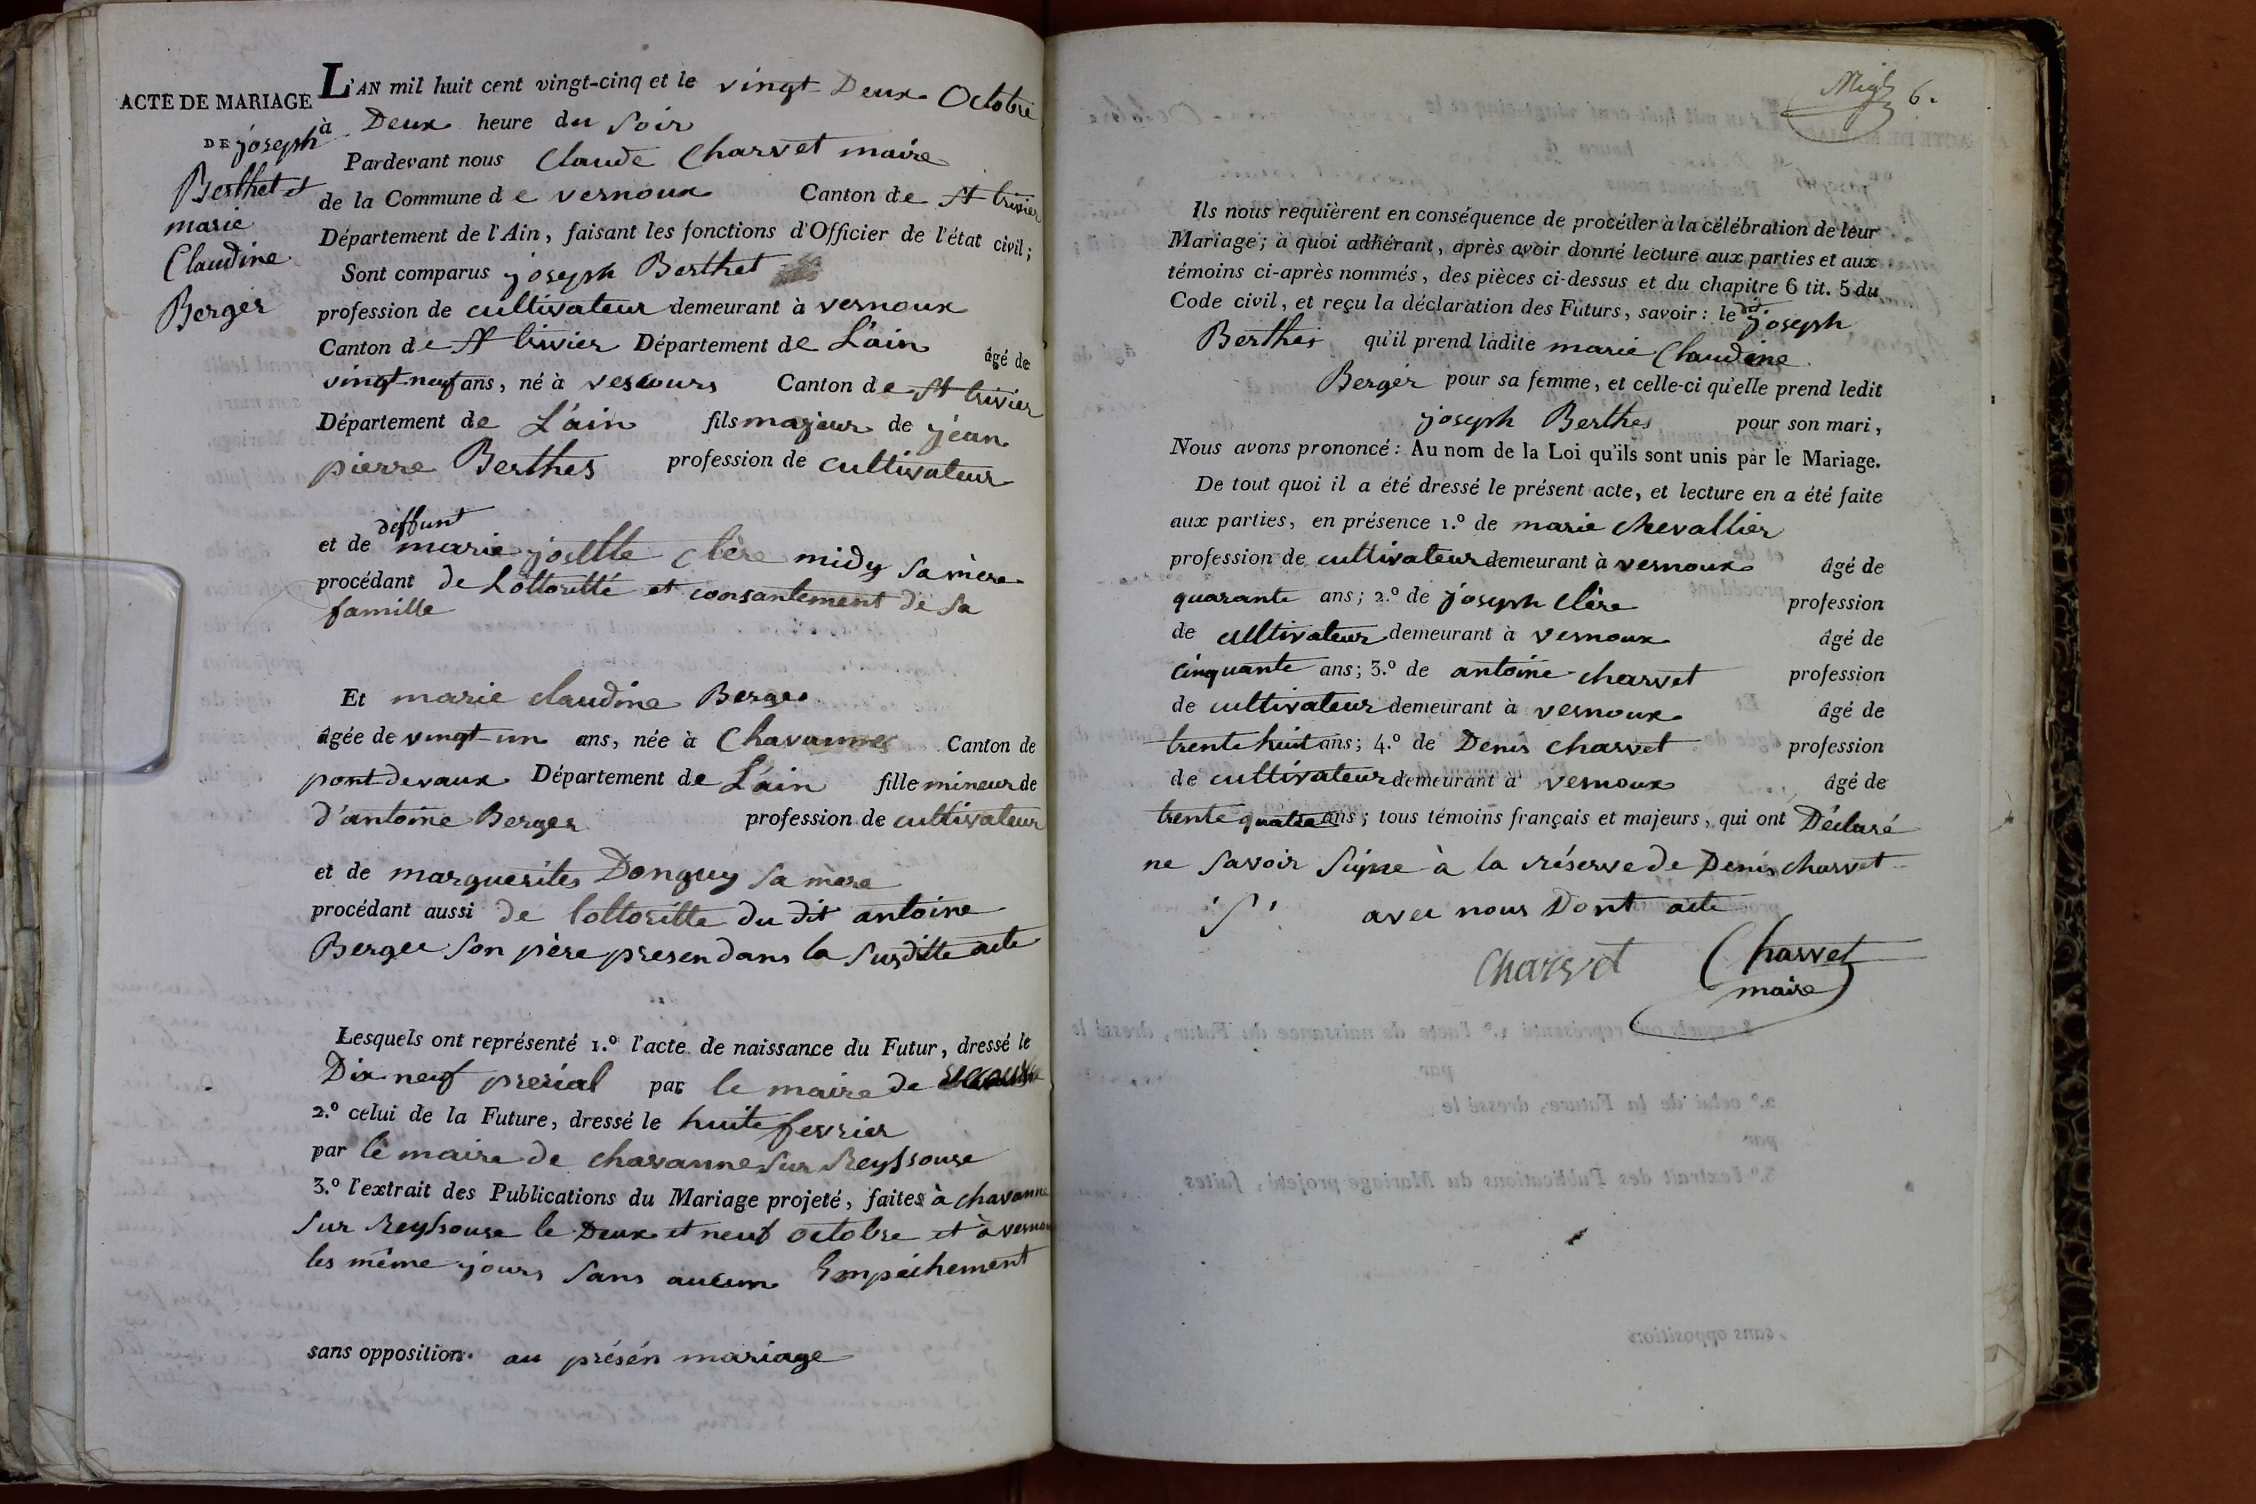 ACTE DE MARIAGE
DE joseph
Berthet et
marie
Claudine
Berger
L'AN mil huit cent vingt-cinq et le vingt Deux Octobre
à Deux heure du soir
Pardevant nous Claude Charvet maire
de la Commune de vernoux Canton de St trivier
Département de l'Ain, faisant les fonctions d'Officier de l'état civil;
Sont comparus joseph Berthet
profession de cultivateur demeurant à vernoux
Canton de St trivier Département de L'ain âgé de
vingt neuf ans, né à vescours Canton de St trivier
Département de L'ain fils majeur de jean
pierre Berthet profession de cultivateur
deffunt
et de marie josette Clère midy sa mère
procédant de Lottoritté et consantement de sa
famille
Et marie claudine Berger
âgée de vingt un ans, née à Chavannes Canton de
pont devaux Département de L'ain fille mineur de
d'antoine Berger profession de cultivateur
et de marguerites Donguy sa mère
procédant aussi de lottoritte du dit antoine
Berger son père presen dans la susditte acte
Lesquels ont représenté 1.º l'acte de naissance du Futur, dressé le
Dix neuf prerial par le maire de
2.º celui de la Future, dressé le huite fevrier
par le maire de chavanne sur Reyssouse
3.º l'extrait des Publications du Mariage projeté, faites à chavanne
sur Reyssouse le Deux et neuf octobre et à vernoux
les même jours sans aucun Empeichement
sans opposition. au présén mariage
6.
Ils nous requièrent en conséquence de procéder à la célébration de leur
Mariage; à quoi adhérant, après avoir donné lecture aux parties et aux
témoins ci-après nommés, des pièces ci-dessus et du chapitre 6 tit. 5 du
Code civil, et reçu la déclaration des Futurs, savoir: le dit joseph
Berthet qu'il prend ladite marie Claudine
Berger pour sa femme, et celle-ci qu'elle prend ledit
joseph Berthet pour son mari,
Nous avons prononcé: Au nom de la Loi qu'ils sont unis par le Mariage.
De tout quoi il a été dressé le présent acte, et lecture en a été faite
aux parties, en présence 1.º de marie chevallier
profession de cultivateur demeurant à vernoux âgé de
quarante ans; 2.º de joseph clère profession
de cultivateur demeurant à vernoux âgé de
cinquante ans; 3.º de antoine charvet profession
de cultivateur demeurant à vernoux âgé de
trente huit ans; 4.º de Denis charvet profession
de cultivateur demeurant à vernoux âgé de
trente quatre ans; tous témoins français et majeurs, qui ont Déclaré
ne savoir signe à la réserve de Denis charvet
avec nous Dont acte
Charvet Charvet
maire